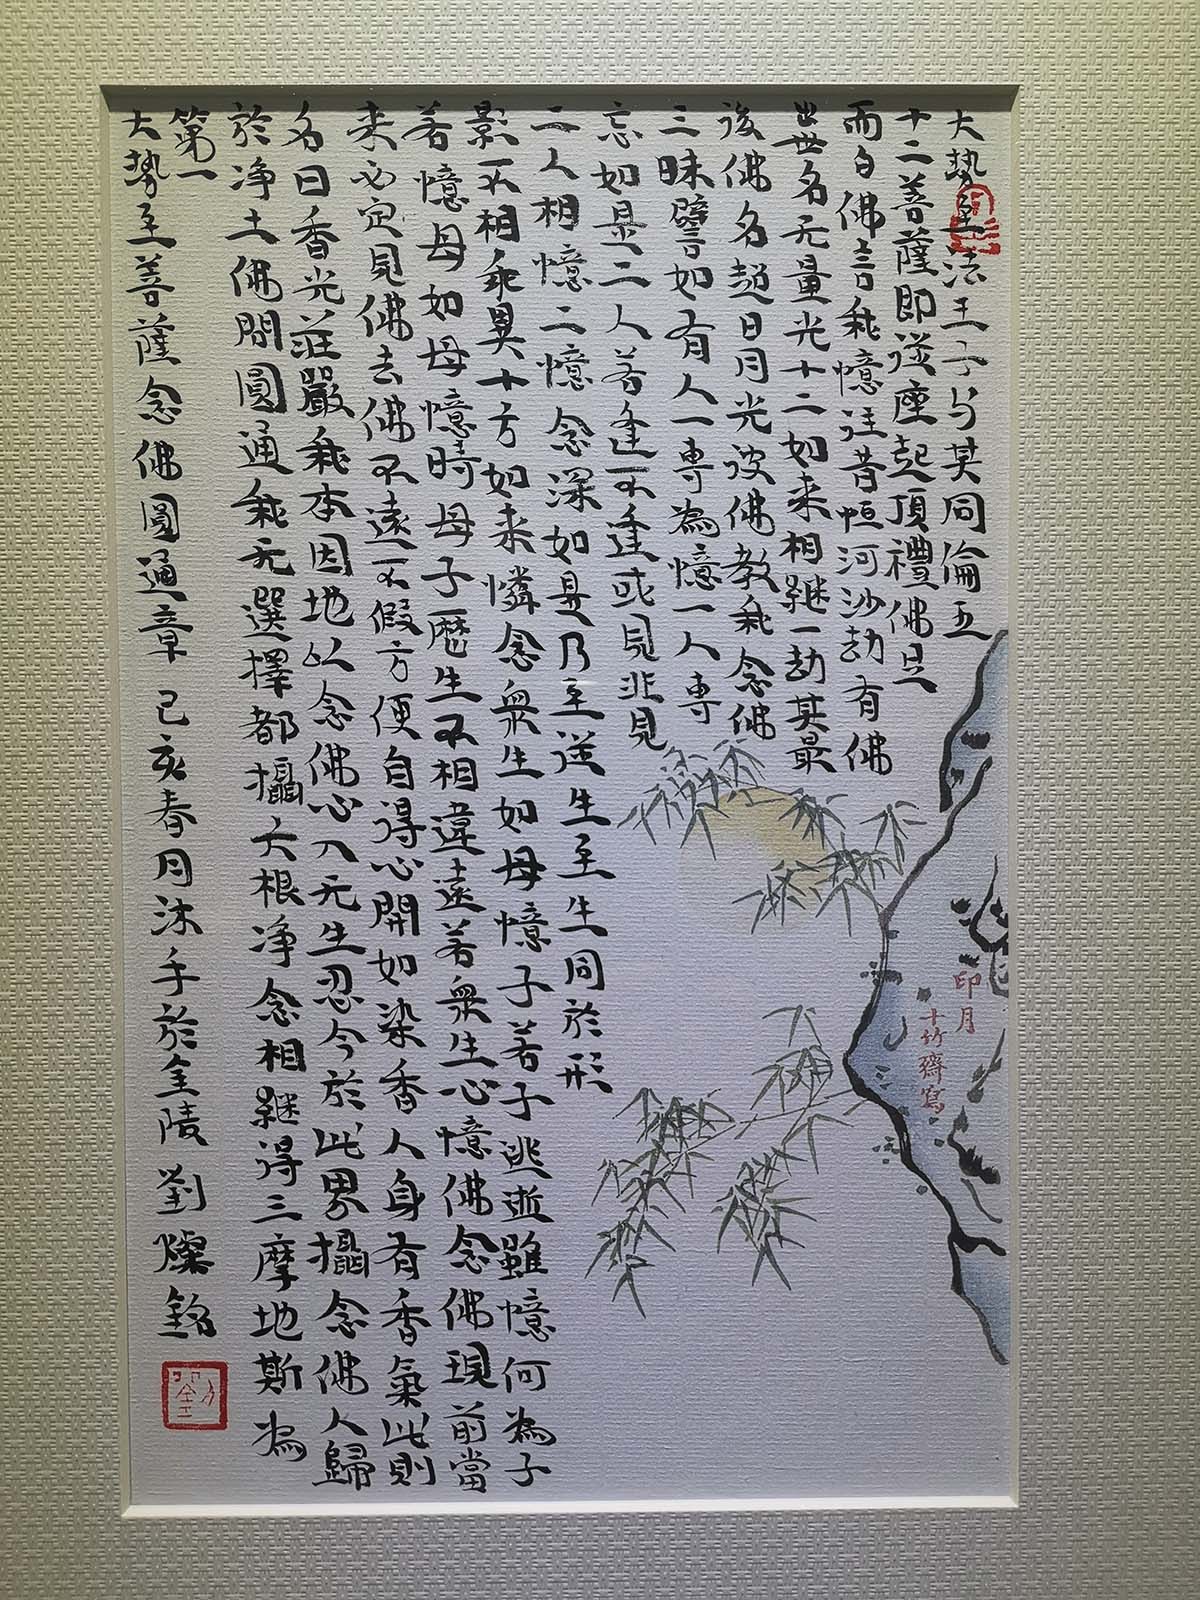 大勢至法王子与其同倫五
十二菩薩即從座起頂禮佛足
而白佛言我憶往昔恒河沙劫有佛
出世名无量光十二如来相継一劫其最
後佛名超日月光彼佛教我念佛
三昧譬如有人一專為憶一人專
忘如是二人若逢不逢或見非見
二人相憶二憶念深如是乃至從生至生同於形
影不相乖異十方如来憐念衆生如母憶子若子逃逝雖憶何為子
若憶母如母憶時母子歷生不相違遠若衆生心憶佛念佛現前當
来必定見佛去佛不遠不假方便自得心開如染香人身有香氣此則
名曰香光莊嚴我本因地以念佛心入无生忍今於此界攝念佛人歸
於净土佛問圓通我无選擇都攝六根净念相継得三摩地斯為
第一
大勢至菩薩念佛圓通章 己亥春月沐手於金陵 劉燦銘
印月
十竹齋寫